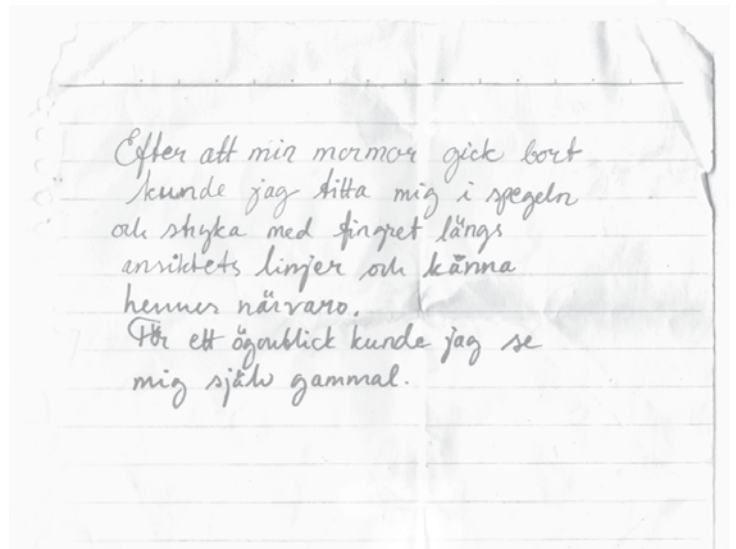 Efter att min mormor gick bort
kunde jag titta mig i spegeln
och stryka med fingret längs
ansiktets linjer och känna
hennes närvaro.
För ett ögonblick kunde jag se
mig själv gammal.